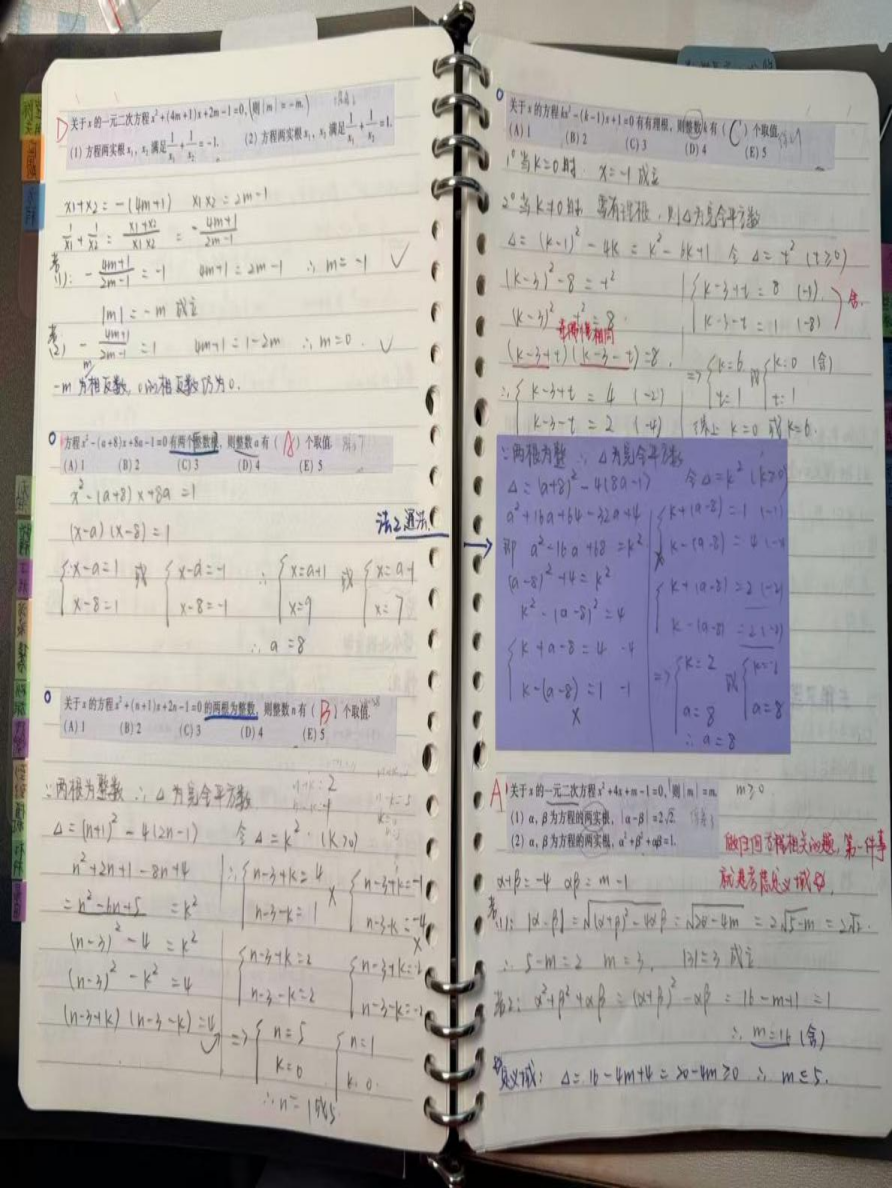 D
关于x的一元二次方程x²+(4m+1)x+2m-1=0,则|m|=-m.
(1) 方程两实根x₁,x₂满足1/x₁+1/x₂=-1. (2) 方程两实根x₁,x₂满足1/x₁+1/x₂=1.
x₁+x₂=-(4m+1) x₁x₂=2m-1
1/x₁+1/x₂=(x₁+x₂)/(x₁x₂)=-(4m+1)/(2m-1)
(1): -(4m+1)/(2m-1)=-1 4m+1=2m-1 ∴m=-1 ✓
|m|=-m 成立
(2) -(4m+1)/(2m-1)=1 4m+1=1-2m ∴m=0. ✓
-m 为相反数, 0的相反数仍为0.
方程x²-(a+8)x+8a-1=0有两个整数根,则整数a有( A )个取值.
(A)1 (B)2 (C)3 (D)4 (E)5
x²-(a+8)x+8a=1
(x-a)(x-8)=1
法2通法
{x-a=1 或 {x-a=-1 ∴ {x=a+1 或 {x=a-1
{x-8=1 {x-8=-1 {x=9 {x=7
∴a=8
关于x的方程x²+(n+1)x+2n-1=0的两根为整数,则整数n有( B )个取值.
(A)1 (B)2 (C)3 (D)4 (E)5
∵两根为整数 ∴Δ为完全平方数
Δ=(n+1)²-4(2n-1) 令Δ=k² (k≥0)
n²+2n+1-8n+4
=n²-6n+5 =k²
(n-3)²-4=k²
(n-3)²-k²=4
(n-3+k)(n-3-k)=4
∴{n-3+k=4 × {n-3+k=-1
{n-3-k=1 {n-3-k=-4 ×
{n-3+k=2 {n-3+k=-2
{n-3-k=2 {n-3-k=-2
=> {n=5 {n=1
{k=0 {k=0
∴n=1或5
关于x的方程kx²-(k-1)x+1=0有有理根,则整数k有( C )个取值.
(A)1 (B)2 (C)3 (D)4 (E)5
1°当k=0时, x=-1 成立
2°当k≠0时 需有理根,则Δ为完全平方数
Δ=(k-1)²-4k=k²-6k+1 令Δ=t² (t≥0)
(k-3)²-8=t²
(k-3)²-t²=8
奇偶性相同
(k-3+t)(k-3-t)=8,
∴{k-3+t=4 (-2)
{k-3-t=2 (-4)
{k-3+t=8 (-1)
{k-3-t=1 (-8) 舍.
=> {k=6 或 {k=0 (舍)
{t=1 {t=1
综上 k=0 或k=6.
∵两根为整 ∴Δ为完全平方数
Δ=(a+8)²-4(8a-1) 令Δ=k² (k≥0)
a²+16a+64-32a+4
即 a²-16a+68=k²
(a-8)²+4=k²
k²-(a-8)²=4
{k+a-8=4 -4
{k-(a-8)=1 -1
×
{k+(a-8)=1 (-1)
{k-(a-8)=4 (-4)
×
{k+(a-8)=2 (-2)
{k-(a-8)=2 (-2)
=> {k=2 或 {k=-2
{a=8 {a=8
∴a=8
A
关于x的一元二次方程x²+4x+m-1=0,则|m|=m. m≥0
(1) α,β为方程的两实根,|α-β|=2√2.
(2) α,β为方程的两实根,α²+β²+αβ=1.
做任何方程相关的题,第一件事
就是考虑定义域
α+β=-4 αβ=m-1
(1): |α-β|=√((α+β)²-4αβ)=√(20-4m)=2√(5-m)=2√2.
∴5-m=2 m=3, |3|=3 成立
条2: α²+β²+αβ=(α+β)²-αβ=16-m+1=1
∴m=16 (舍)
定义域: Δ=16-4m+4=20-4m≥0 ∴m≤5.